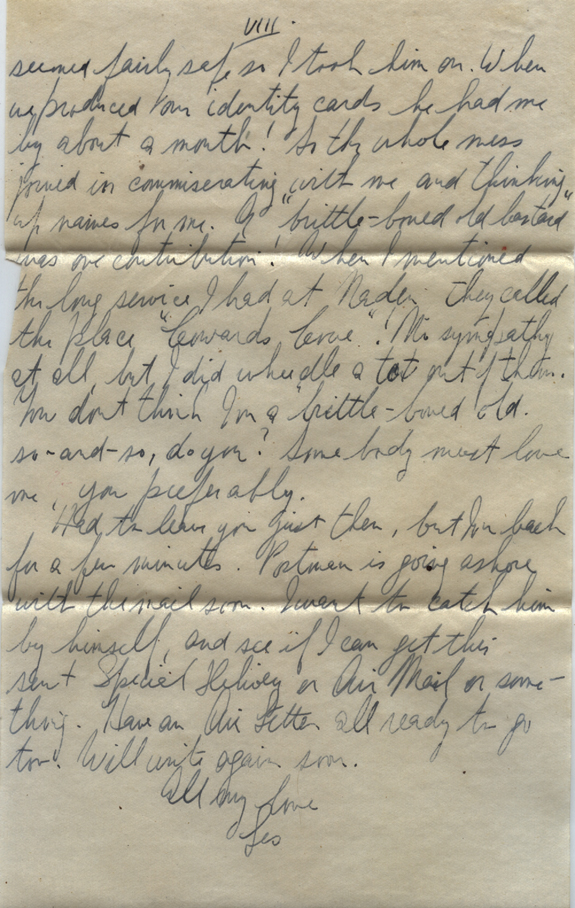 VIII
seemed fairly safe so I took him on. When
we produced our identity cards he had me
by about a month! So the whole mess
joined in commiserating with me and thinking
up names for me. A "brittle-boned old bastard"
was one contribution! When I mentioned
the long service I had at Naden they called
the place "Cowards Cove"! No sympathy
at all, but I did wheedle a tot out of them.
You don't think I'm a brittle-boned old
so-and-so, do you? Somebody must love
me, you preferably.
Had to leave you just then, but I'm back
for a few minutes. Postman is going ashore
with the mail soon. I want to catch him
by himself, and see if I can get this
sent Special Delivery or Air Mail or some-
thing. Have an Air Letter all ready to go
too. Will write again soon.
All my love
Les